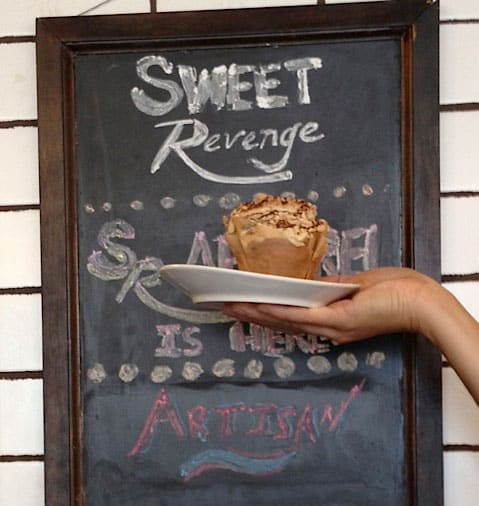 SWEET
Revenge
SR
IS HERE
ARTISAN